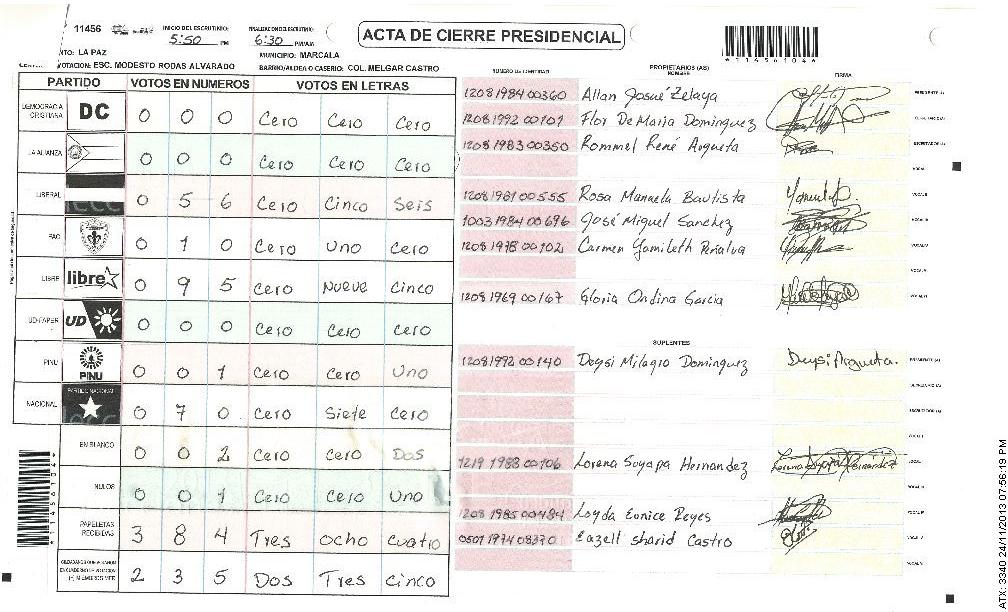 11456 INICIO DEL ESCRUTINIO: 5:50 PM FINALIZACION DEL ESCRUTINIO: 6:30 PM/AM
ACTA DE CIERRE PRESIDENCIAL
*11456104*
NTO: LA PAZ MUNICIPIO: MARCALA
VOTACION: ESC. MODESTO RODAS ALVARADO BARRIO/ALDEA O CASERIO: COL. MELGAR CASTRO
PARTIDO VOTOS EN NUMEROS VOTOS EN LETRAS
DEMOCRACIA CRISTIANA DC 0 0 0 Cero Cero Cero
LA ALIANZA 0 0 0 Cero Cero Cero
LIBERAL 0 5 6 Cero Cinco Seis
PAC 0 1 0 Cero Uno Cero
LIBRE libre 0 9 5 Cero Nueve Cinco
UD-FAPER UD 0 0 0 Cero Cero Cero
PINU PINU 0 0 1 Cero Cero Uno
NACIONAL PARTIDO NACIONAL 0 7 0 Cero Siete Cero
EN BLANCO 0 0 2 Cero Cero Dos
NULOS 0 0 1 Cero Cero Uno
PAPELETAS RECIBIDAS 3 8 4 Tres ocho cuatro
2 3 5 Dos Tres Cinco
NUMERO DE IDENTIDAD PROPIETARIOS (AS) NOMBRE FIRMA
1208198400360 Allan Josué Zelaya PRESIDENTE (A)
1208199200101 Flor De Maria Dominguez
1208198300350 Rommel René Argueta SECRETARIO (A)
VOCAL I
1208198100555 Rosa Manuela Bautista VOCAL II
1003198400696 José Miguel Sanchez VOCAL III
1208197800102 Carmen Yamileth Peñalva VOCAL IV
VOCAL V
1208196900167 Gloria Ondina Garcia VOCAL VI
SUPLENTES
1208199200140 Deysi Milagro Dominguez Deysi Argueta. PRESIDENTE (A)
SECRETARIO (A)
VOCAL I
1219198800106 Lorena Suyapa Hernandez
1208198500484 Loyda Eunice Reyes VOCAL IV
0501197408370 Eazell sharid Castro VOCAL V
VOCAL VI
*11456104*
ATX: 3340 24/11/2013 07:56:19 PM